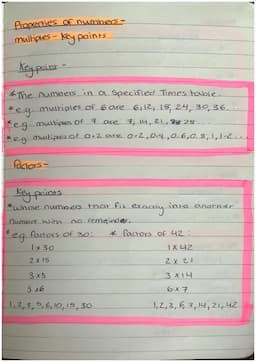 Properties of numbers -
multiples - key points
key point -
* The numbers in a specified Times table.
* e.g. multiples of 6 are 6,12,18,24,30,36...
* e.g. multiples of 7 are 7,14,21,28...
* e.g. multiples of 0.2 are 0.2,0.4,0.6,0.8,1,1.2...
Factors -
Key points
* whose numbers that fit exactly into another
number with no remainder.
* e.g. factors of 30: * factors of 42:
1 x 30 1 x 42
2 x 15 2 x 21
3 x 3 x 14
5 x 6 6 x 7
1,2,3,5,6,10,15,30 1,2,3,6,7,14,21,42